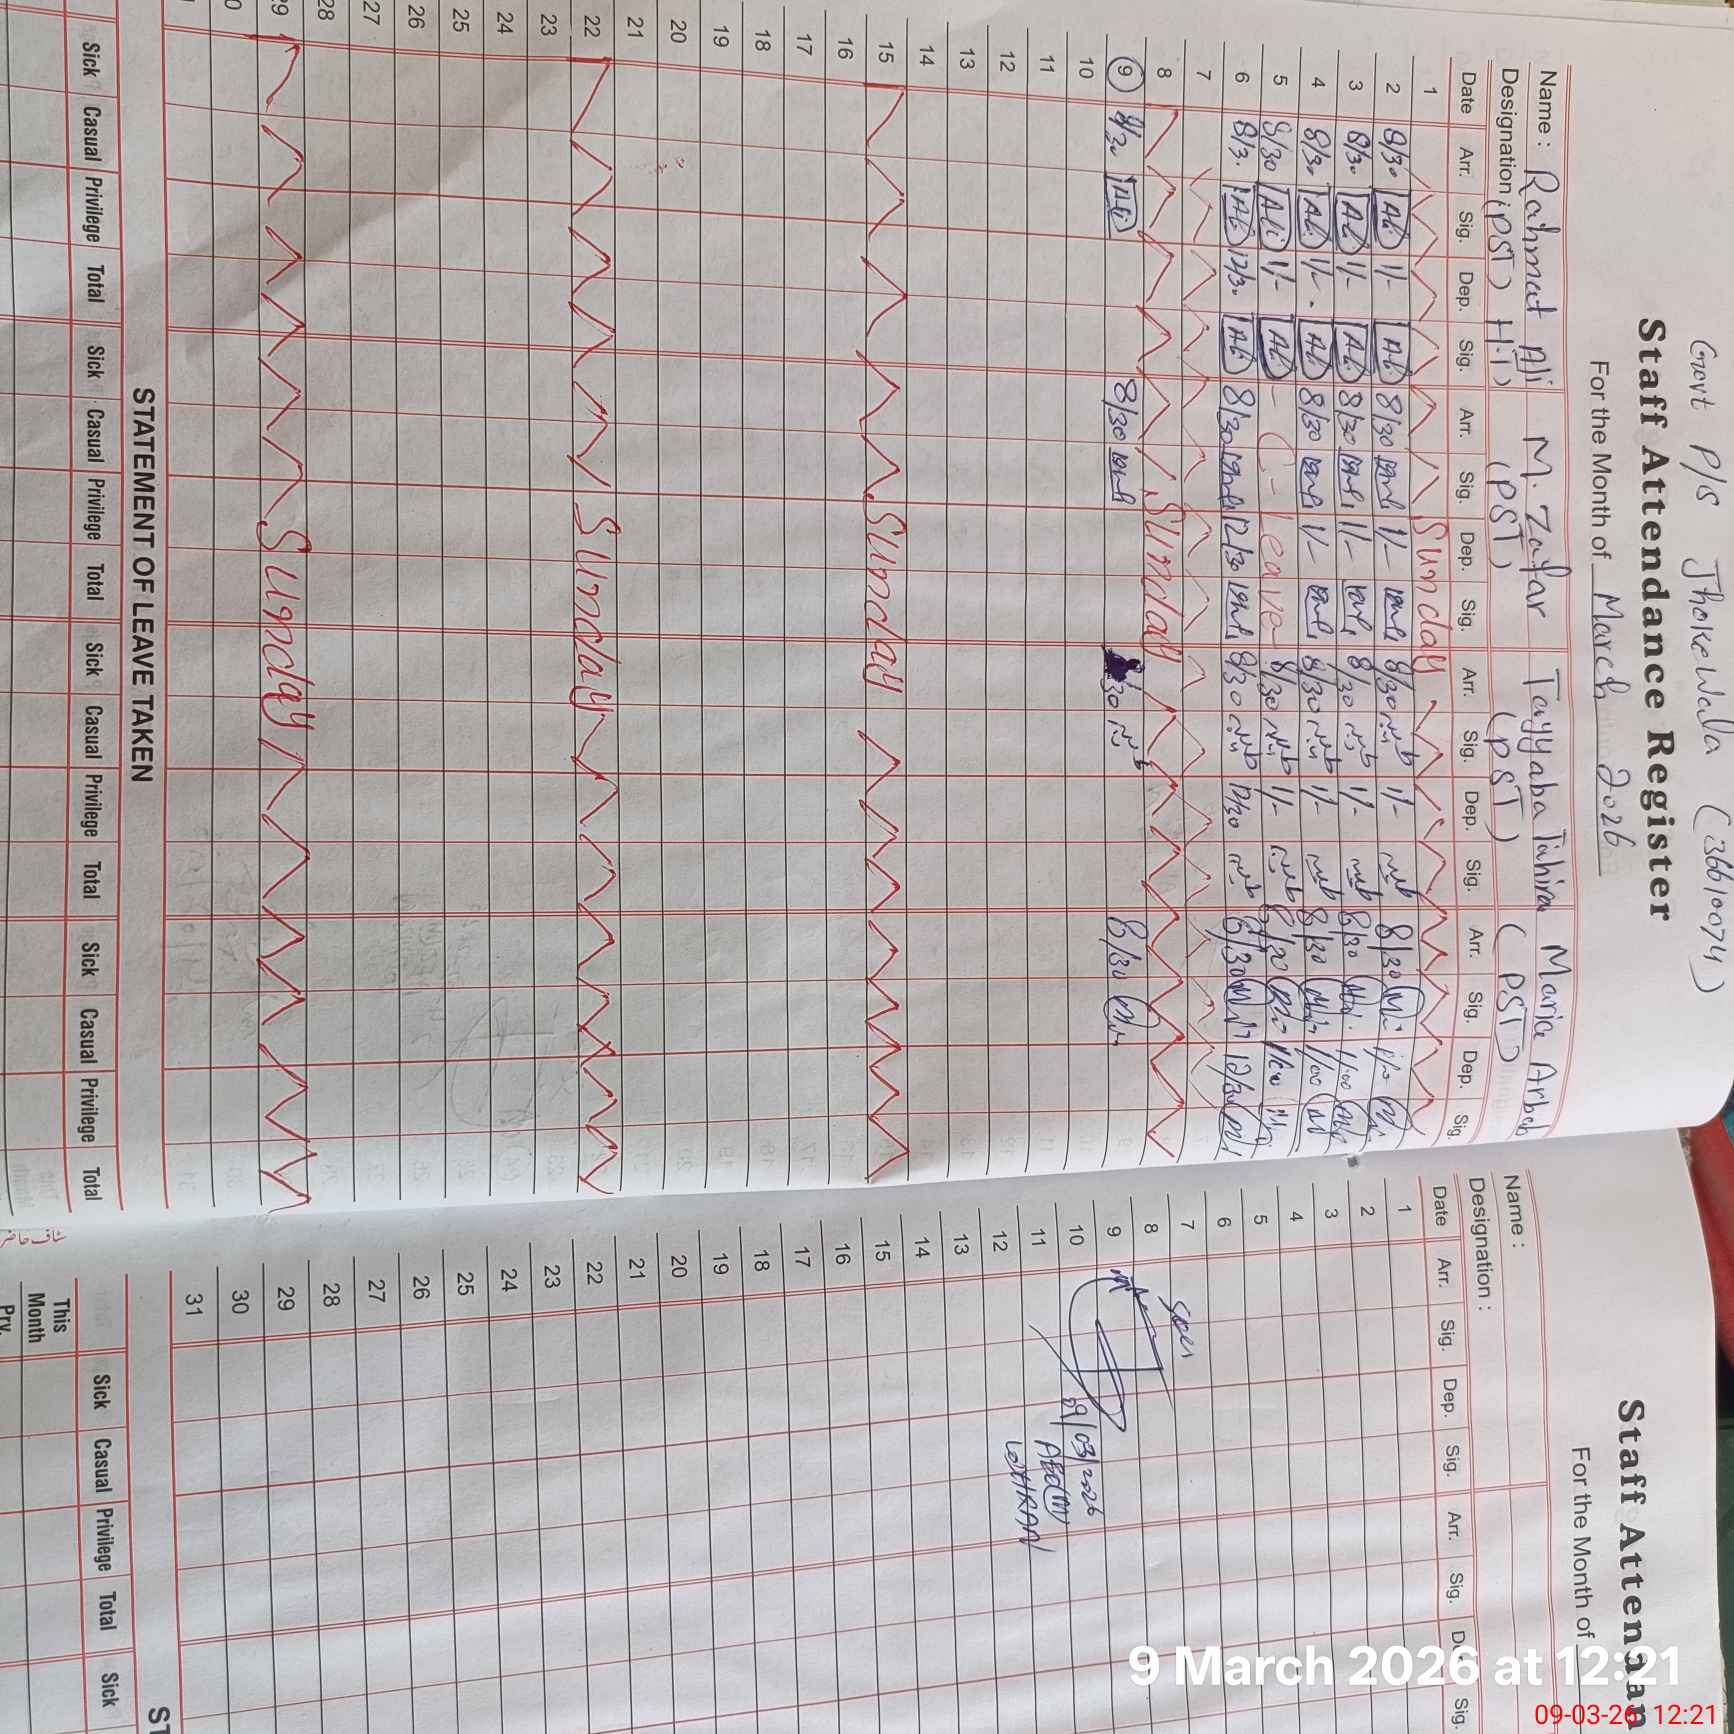 Govt P/S Jhoke Wala (36610074)
Staff Attendance Register
For the Month of March 2026
Name : Rahmat Ali M. Zafar Tayyaba Tahira Maria Arbab
Designation : (PST) H.T) (PST) (PST) (PST)
Date Arr. Sig. Dep. Sig. Arr. Sig. Dep. Sig. Arr. Sig. Dep. Sig. Arr. Sig. Dep. Sig.
1 Sunday
2 8/30 Ali 1/- Ali 8/30 1/- 8/30 1/- 8/30
3 8/30 Ali 1/- Ali 8/30 1/- 8/30 1/- 8/30 1/00
4 8/30 Ali 1/- Ali 8/30 1/- 8/30 1/- 8/30 1/00
5 8/30 Ali 1/- Ali - C - Leave - 8/30 1/- 8/30 1/00
6 8/30 Ali 12/30 Ali 8/30 12/30 8/30 12/30 8/30 12/30
7
8 Sunday
9 8/30 Ali 8/30 8/30 8/30
10
11
12
13
14
15 Sunday
16
17
18
19
20
21
22 Sunday
23
24
25
26
27
28
29 Sunday
STATEMENT OF LEAVE TAKEN
Sick Casual Privilege Total Sick Casual Privilege Total Sick Casual Privilege Total Sick Casual Privilege Total
Staff Attendan
For the Month of
Name :
Designation :
Date Arr. Sig. Dep. Sig. Arr. Sig. Sig.
1
2
3
4
5
6
7 Seen
8
9
10 09/03/2026
11
12 LODHRAN
13
14
15
16
17
18
19
20
21
22
23
24
25
26
27
28
29
30
31
Sick Casual Privilege Total Sick
This
Month
Prv.
سٹاف حاضر
9 March 2026 at 12:21
09-03-26 12:21